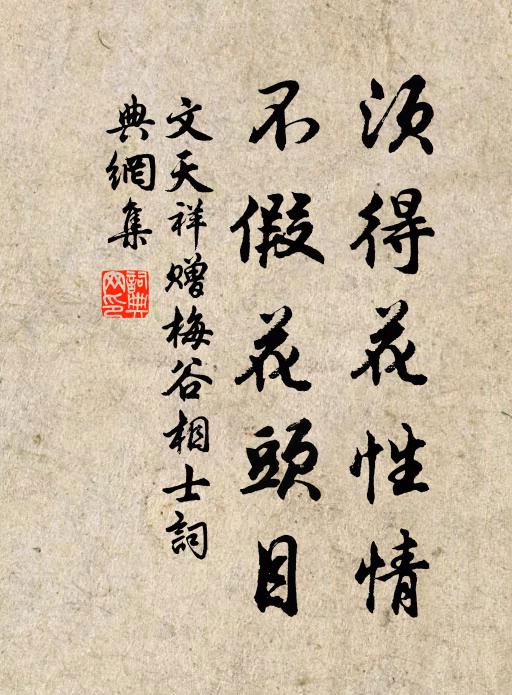 须得花性情
不假花頭目
文天祥赠梅谷相士詞
典網集
詞典網印